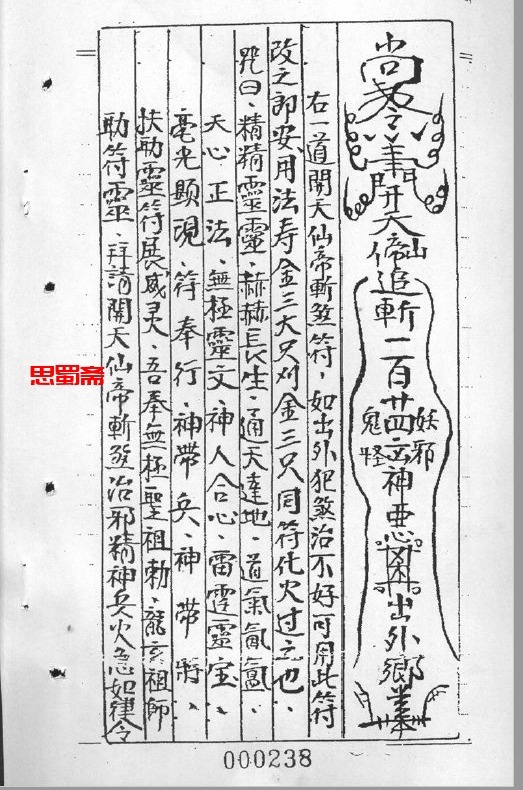 開天仙帝追斬一百廿四凶神惡煞出外鄉
妖邪
鬼怪
右一道開天仙帝斬煞符，如出外犯煞治不好可用此符
改之即安，用法寿金三大只刈金三只同符化火过立也、
咒曰、精精靈靈、赫赫長生、通天達地、道氣氤氳、
天心正法、無極靈文、神人合心、雷霆靈宝、
毫光顯現、符奉行、神帶兵、神帶將、
扶助靈符展威灵、吾奉無極聖祖勅、祖師
助符靈、拜請開天仙帝斬煞治邪精神兵火急如律令
思蜀斋
000238